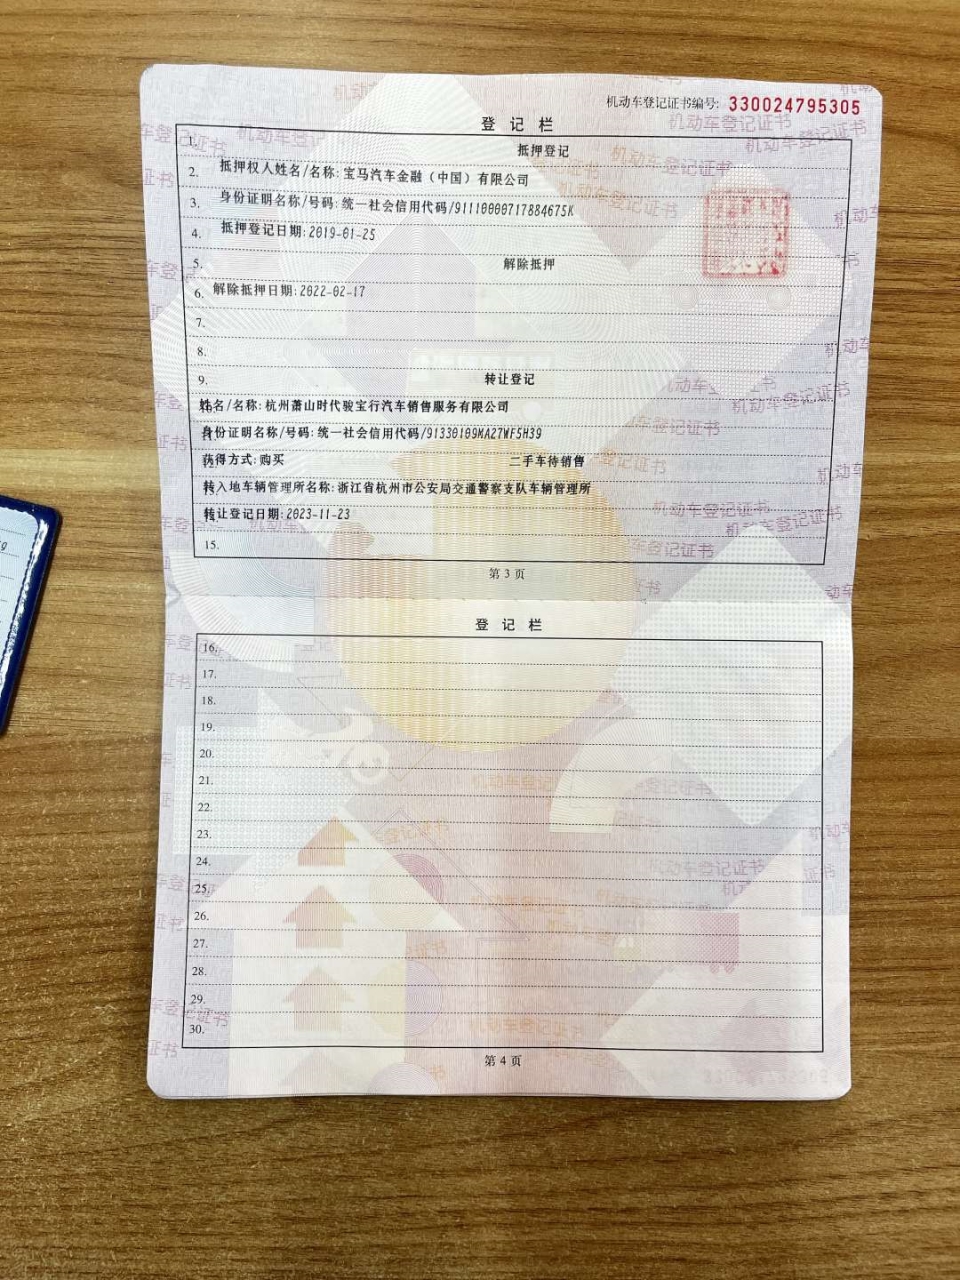 机动车登记证书编号: 330024795305
登 记 栏
1. 抵押登记
2. 抵押权人姓名/名称: 宝马汽车金融（中国）有限公司
3. 身份证明名称/号码: 统一社会信用代码/91110000717884675K
4. 抵押登记日期: 2019-01-25
5. 解除抵押
6. 解除抵押日期: 2022-02-17
7.
8.
9. 转让登记
姓名/名称: 杭州萧山时代骏宝行汽车销售服务有限公司
身份证明名称/号码: 统一社会信用代码/91330109MA27WF5H39
获得方式: 购买 二手车待销售
转入地车辆管理所名称: 浙江省杭州市公安局交通警察支队车辆管理所
转让登记日期: 2023-11-23
15.
第 3 页
登 记 栏
16.
17.
18.
19.
20.
21.
22.
23.
24.
25.
26.
27.
28.
29.
30.
第 4 页